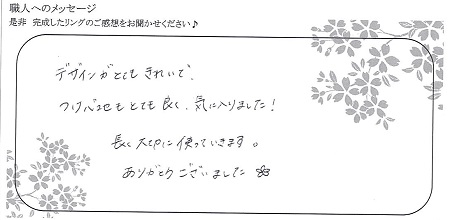 職人へのメッセージ
是非 完成したリングのご感想をお聞かせください♪
デザインがとてもきれいで、
つけ心地もとても良く、気に入りました!
長く大切に使っていきます。
ありがとうございました